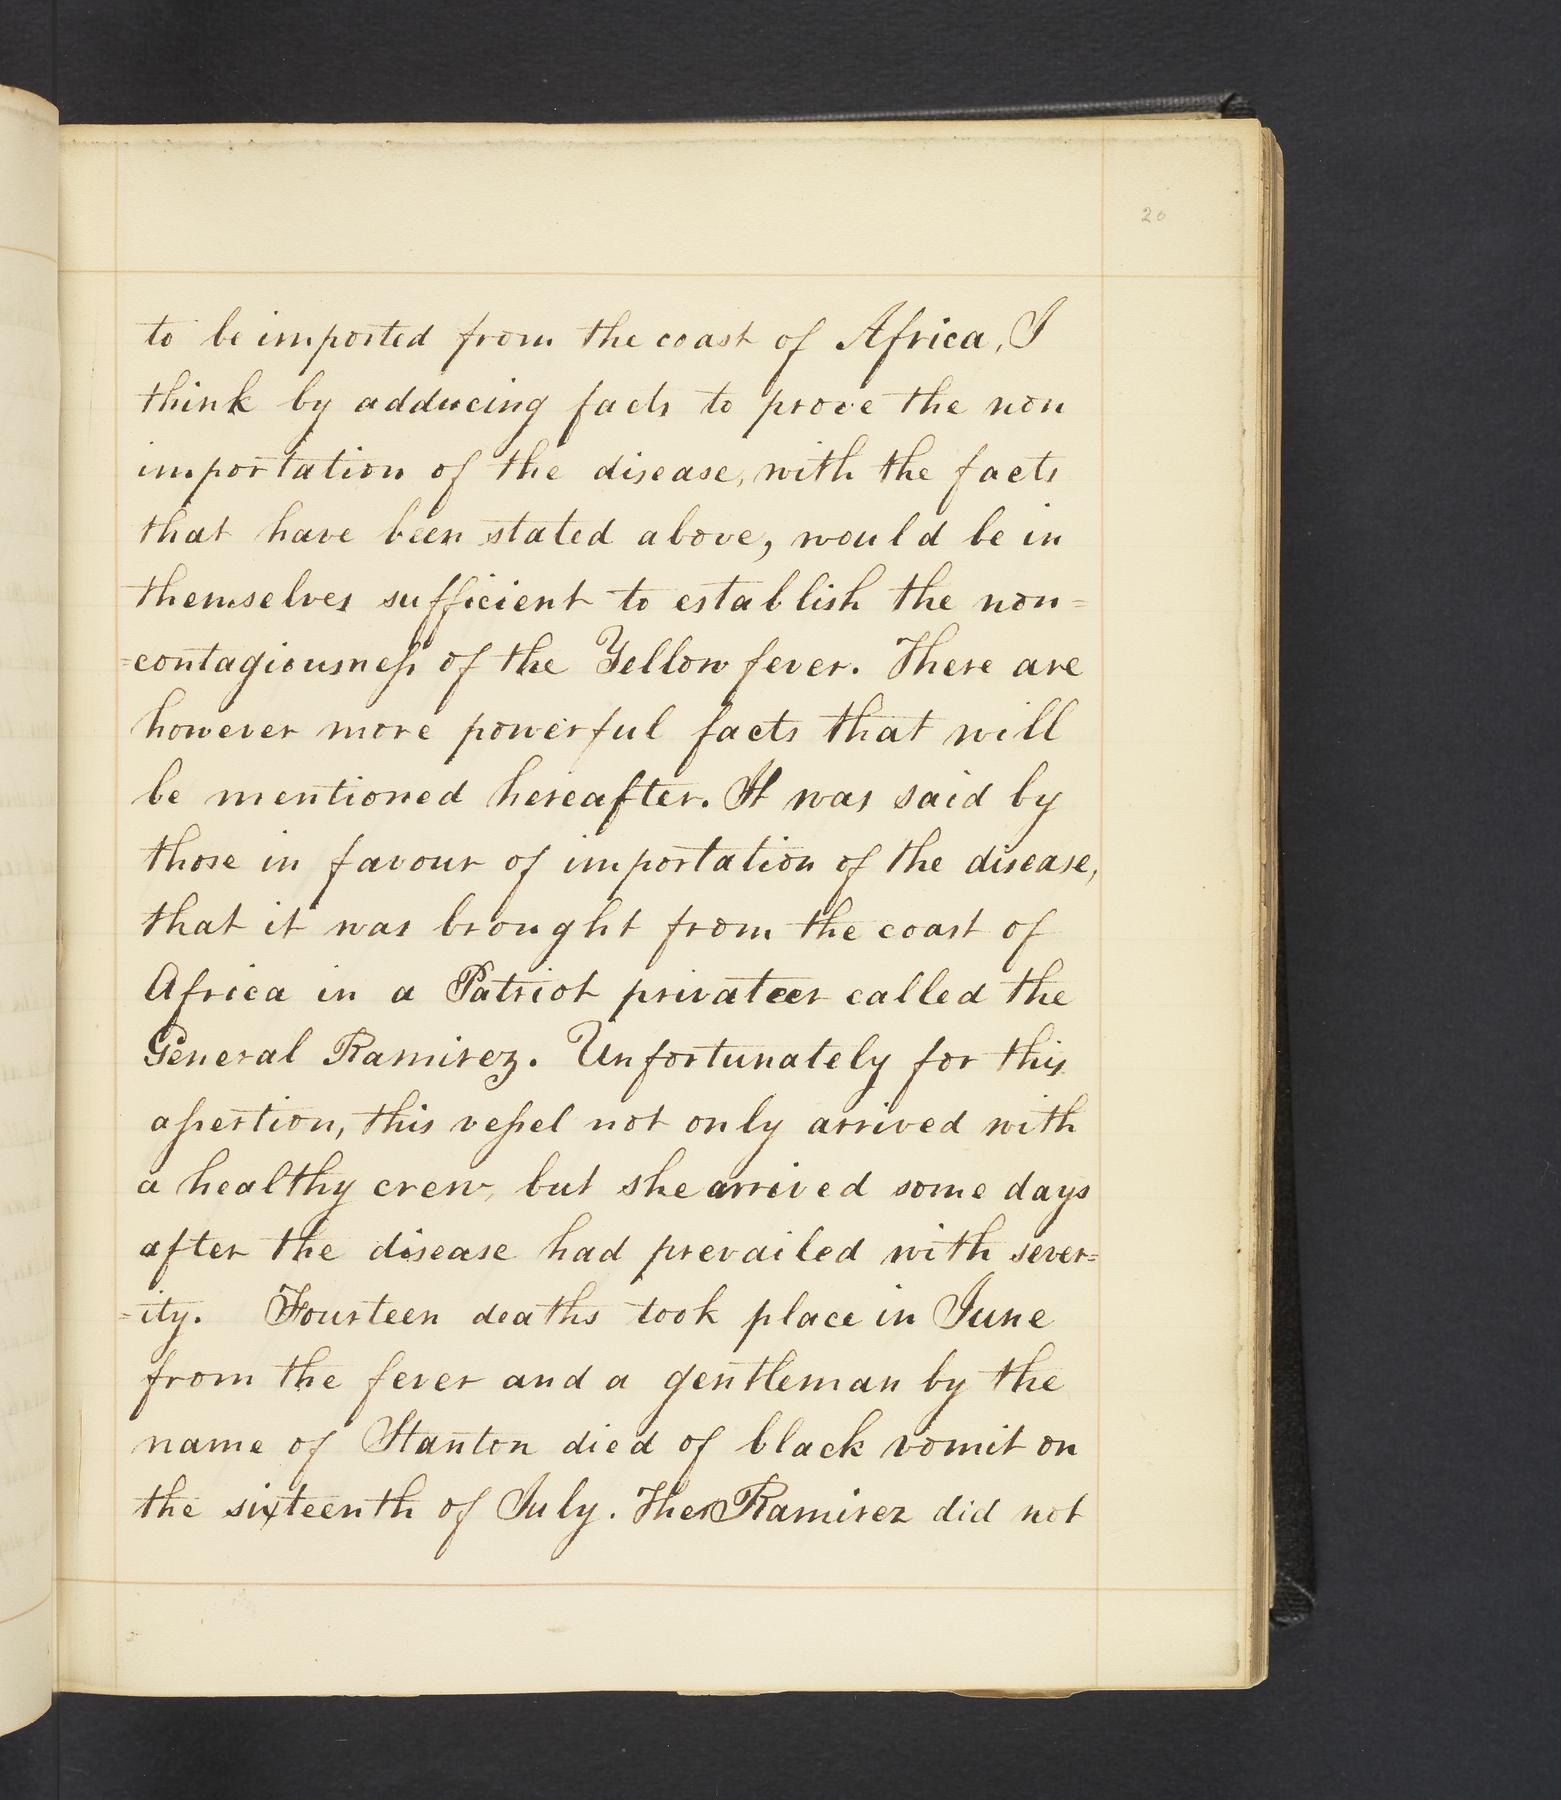 20
to be imported from the coast of Africa, I
think by adducing facts to prove the non
importation of the disease, with the facts
that have been stated above, would be in
themselves sufficient to establish the non=
=contagiousneſs of the Yellow fever. There are
however more powerful facts that will
be mentioned hereafter. It was said by
those in favour of importation of the disease,
that it was brought from the coast of
Africa in a Patriot privateer called the
General Ramirez. Unfortunately for this
aſsertion, this veſsel not only arrived with
a healthy crew, but she arrived some days
after the disease had prevailed with sever=
=ity. Fourteen deaths took place in June
from the fever and a gentleman by the
name of Stanton died of black vomit on
the sixteenth of July. The Ramirez did not